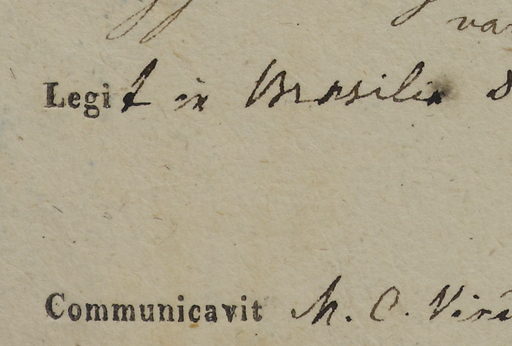 var
Legit in Brasilia
Communicavit M. C. Vire